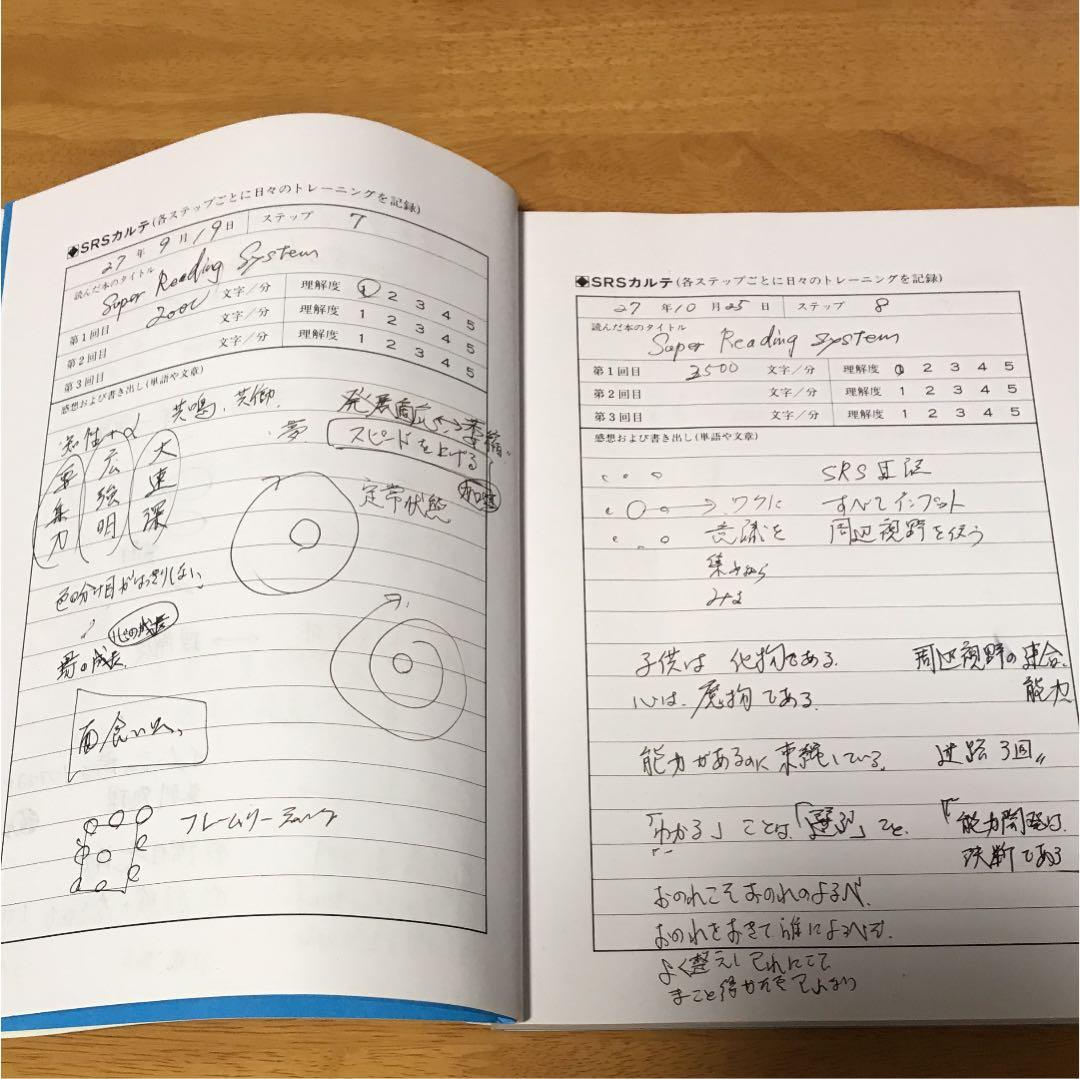 ◆SRSカルテ(各ステップごとに日々のトレーニングを記録)
27年9月19日 ステップ 7
読んだ本のタイトル
Super Reading System
第1回目 200 文字/分 理解度 1 2 3 4 5
第2回目 文字/分 理解度 1 2 3 4 5
第3回目 文字/分 理解度 1 2 3 4 5
感想および書き出し(単語や文章)
知性+α 共鳴、共働
・夢
スピードを上げる
大速深
広強明
集力
定常状態
色の分け目がはっきりしない
心の成長
の成長
面食い
フレームリーディング
◆SRSカルテ(各ステップごとに日々のトレーニングを記録)
27年10月25日 ステップ 8
読んだ本のタイトル
Super Reading System
第1回目 3500 文字/分 理解度 1 2 3 4 5
第2回目 文字/分 理解度 1 2 3 4 5
第3回目 文字/分 理解度 1 2 3 4 5
感想および書き出し(単語や文章)
SRS
→ワクに すべてインプット
意識を 周辺視野を使う
みる
子供は 化物である. 周辺視野の
心は、魔物である. 能力
能力があるのに束縛している。 進路3回〃
「わかる」ことは「選ぶ」こと. 「能力開発は
決断である
おのれこそおのれのよるべ
おのれをおきて誰によるべぞ
よく整えしおのれにこそ
まこと得がたき